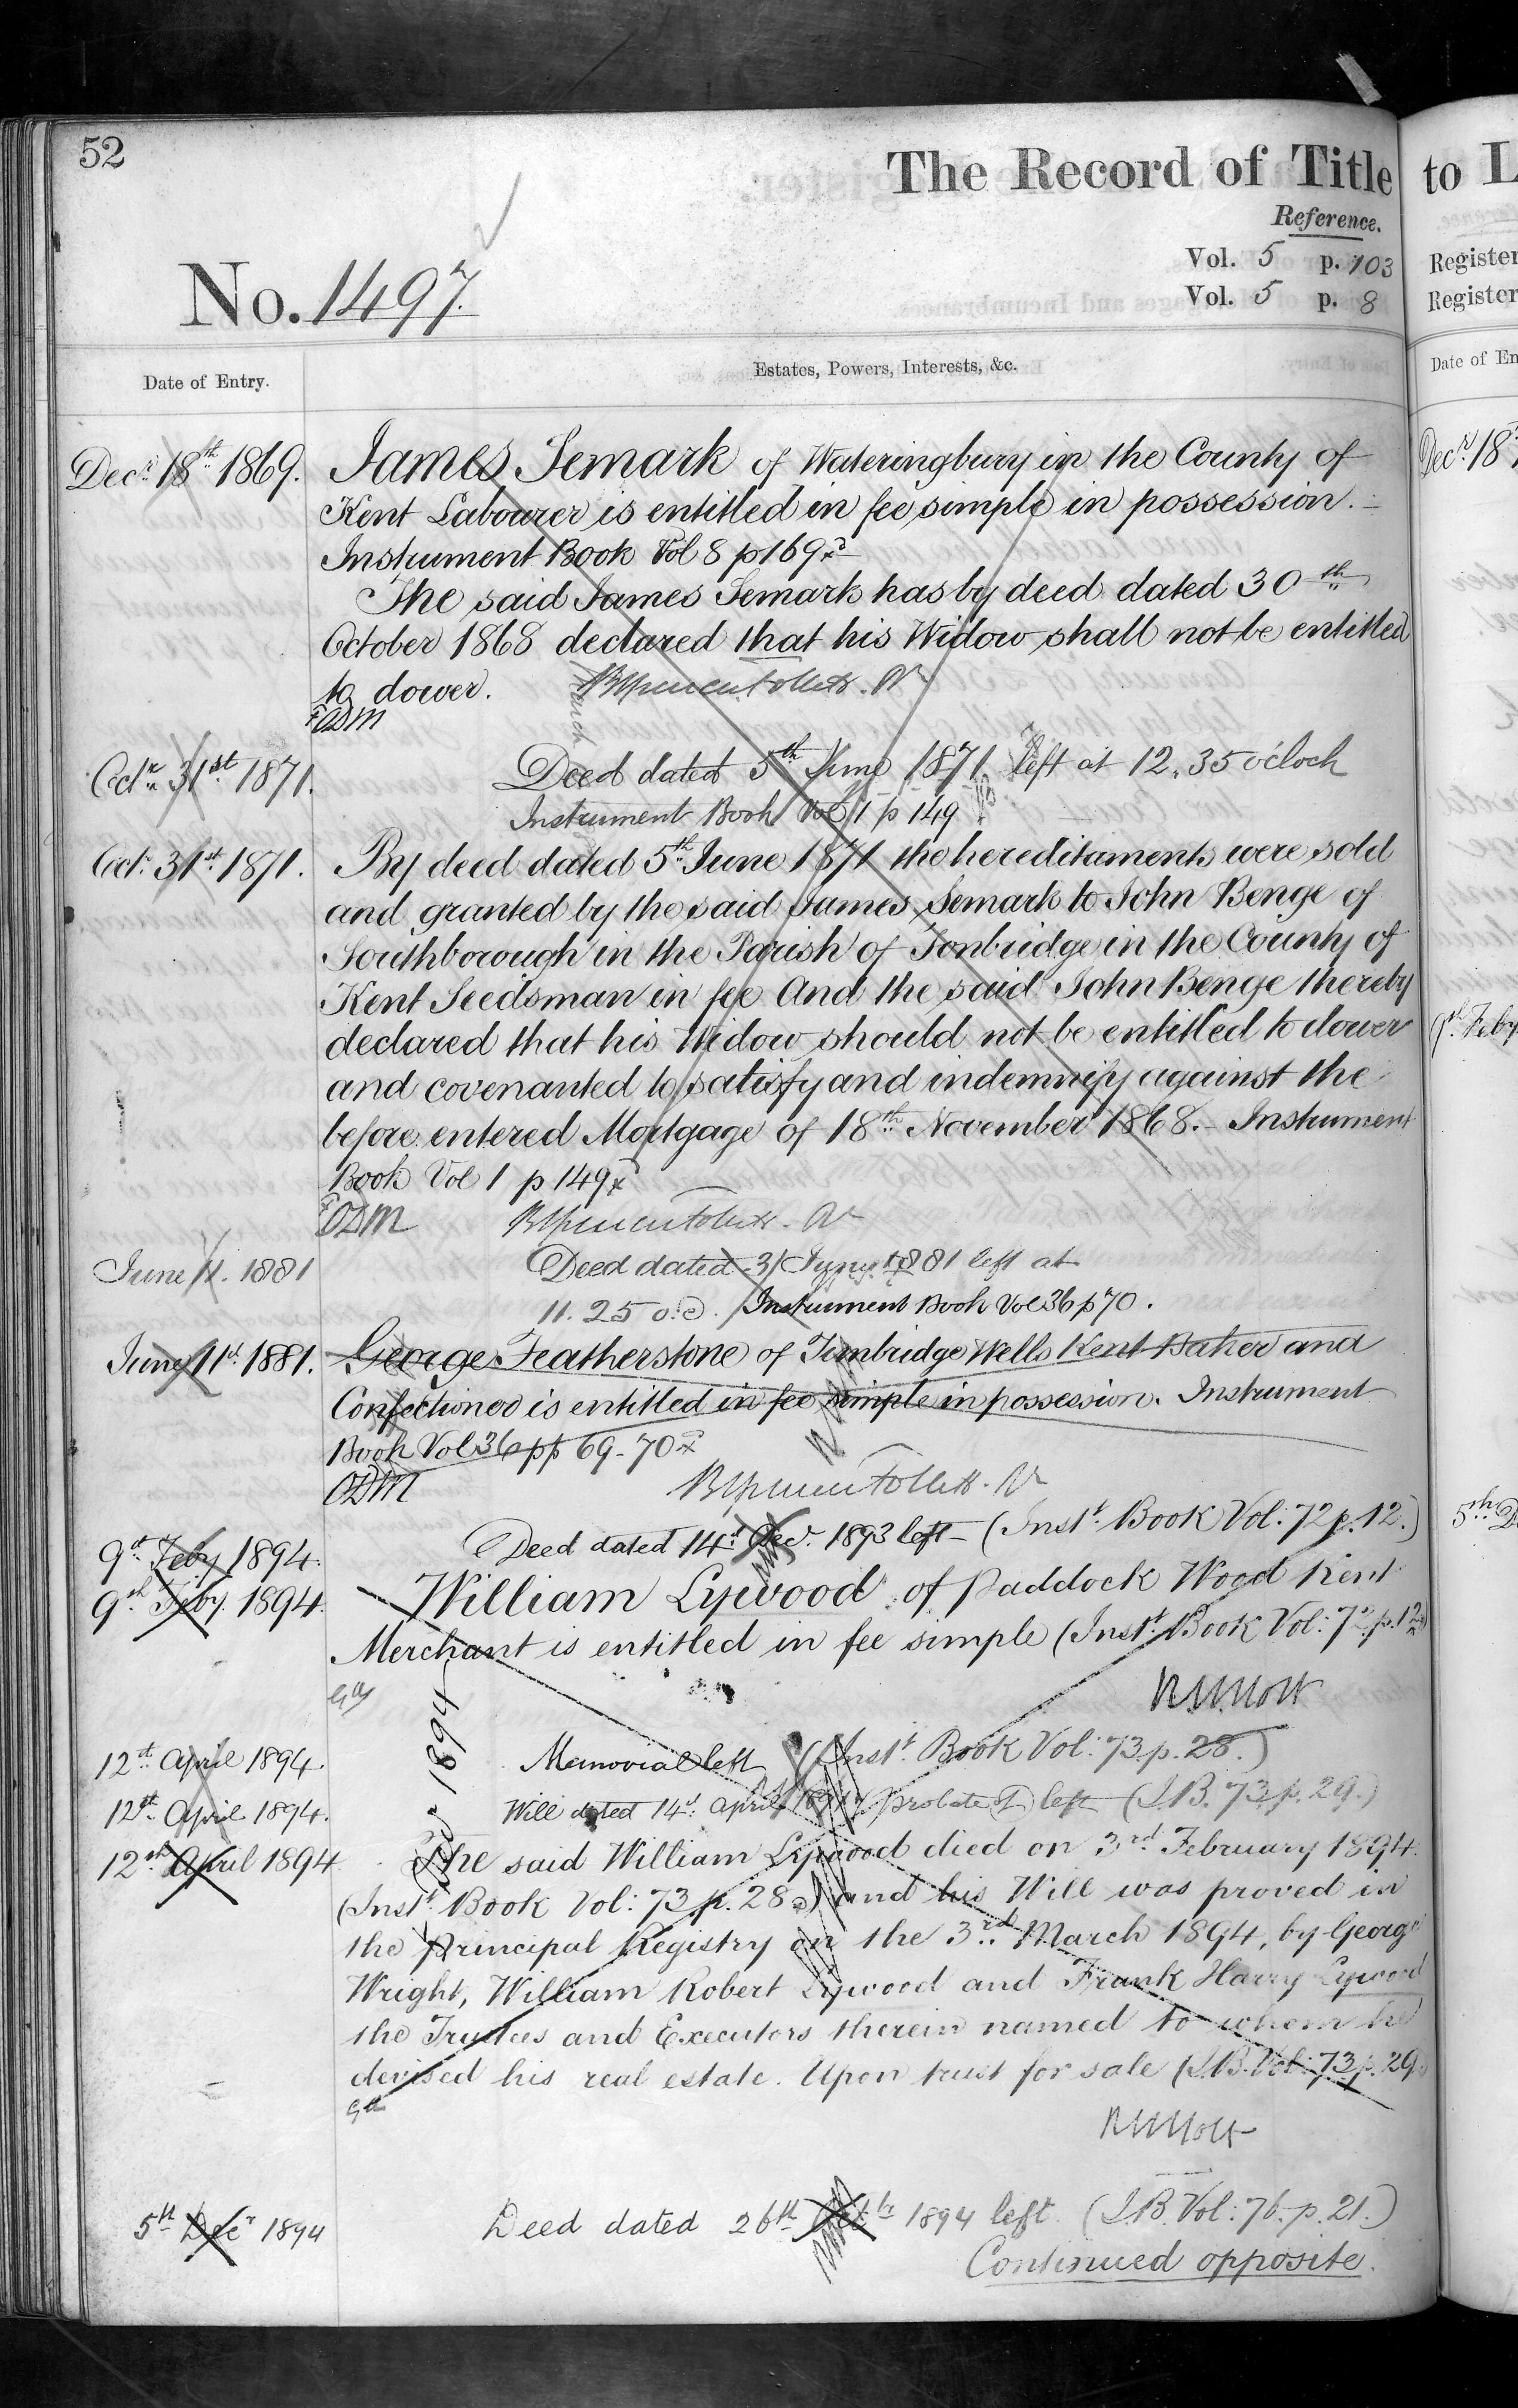 52
The Record of Title
to L
Reference.
Vol. 5 p. 103
Register
No. 1497.
Vol. 5 p. 8
Register
Date of Entry.
Estates, Powers, Interests, &c.
Date of En
Decr. 18th 1869. James Semark of Wateringbury in the County of
Decr. 18
Kent Labourer is entitled in fee simple in possession.
Instrument Book Vol 8 p 169
The said James Semark has by deed dated 30th
October 1868 declared that his Widow shall not be entitled
to dower.
ODM
Octr. 31st 1871. Deed dated 5th June 1871 left at 12.35 o'clock
Instrument Book Vol 1 p 149
Oct. 31st 1871. By deed dated 5th June 1871 the hereditaments were sold
and granted by the said James Semark to John Benge of
Southborough in the Parish of Tonbridge in the County of
Kent Seedsman in fee And the said John Benge thereby
declared that his Widow should not be entitled to dower
Feby
and covenanted to satisfy and indemnify against the
before entered Mortgage of 18th November 1868. Instrument
Book Vol 1 p 149
ODM
June 11. 1881 Deed dated 31 1881 left at
11.25 o.c. Instrument Book Vol 36 p 70.
June 11th 1881. George Featherstone of Tunbridge Wells Kent Baker and
Confectioner is entitled in fee simple in possession. Instrument
Book Vol 36 pp 69-70
ODM
9th Feby 1894. Deed dated 14th Decr. 1893 left (Inst. Book Vol: 72 p. 12.)
5th D
9th Feby. 1894. William Lywood of Paddock Wood Kent
Merchant is entitled in fee simple (Inst. Book Vol: 72 p. 12)
1894
12th April 1894. Memorial left (Inst. Book Vol: 73. p. 28.)
12th April 1894. Will dated 14th April (Probate of) left (I.B. 73. p. 29.)
12th April 1894 The said William Lywood died on 3rd February 1894.
(Inst. Book Vol: 73. p. 28.) and his Will was proved in
the Principal Registry on the 3rd March 1894, by George
Wright, William Robert Lywood and Frank Harry Lywood
the Trustees and Executors therein named to whom he
devised his real estate. Upon trust for sale (I.B. Vol: 73 p. 29.
5th Decr 1894 Deed dated 26th Octr 1894 left. (I.B. Vol: 76. p. 21.)
Continued opposite.